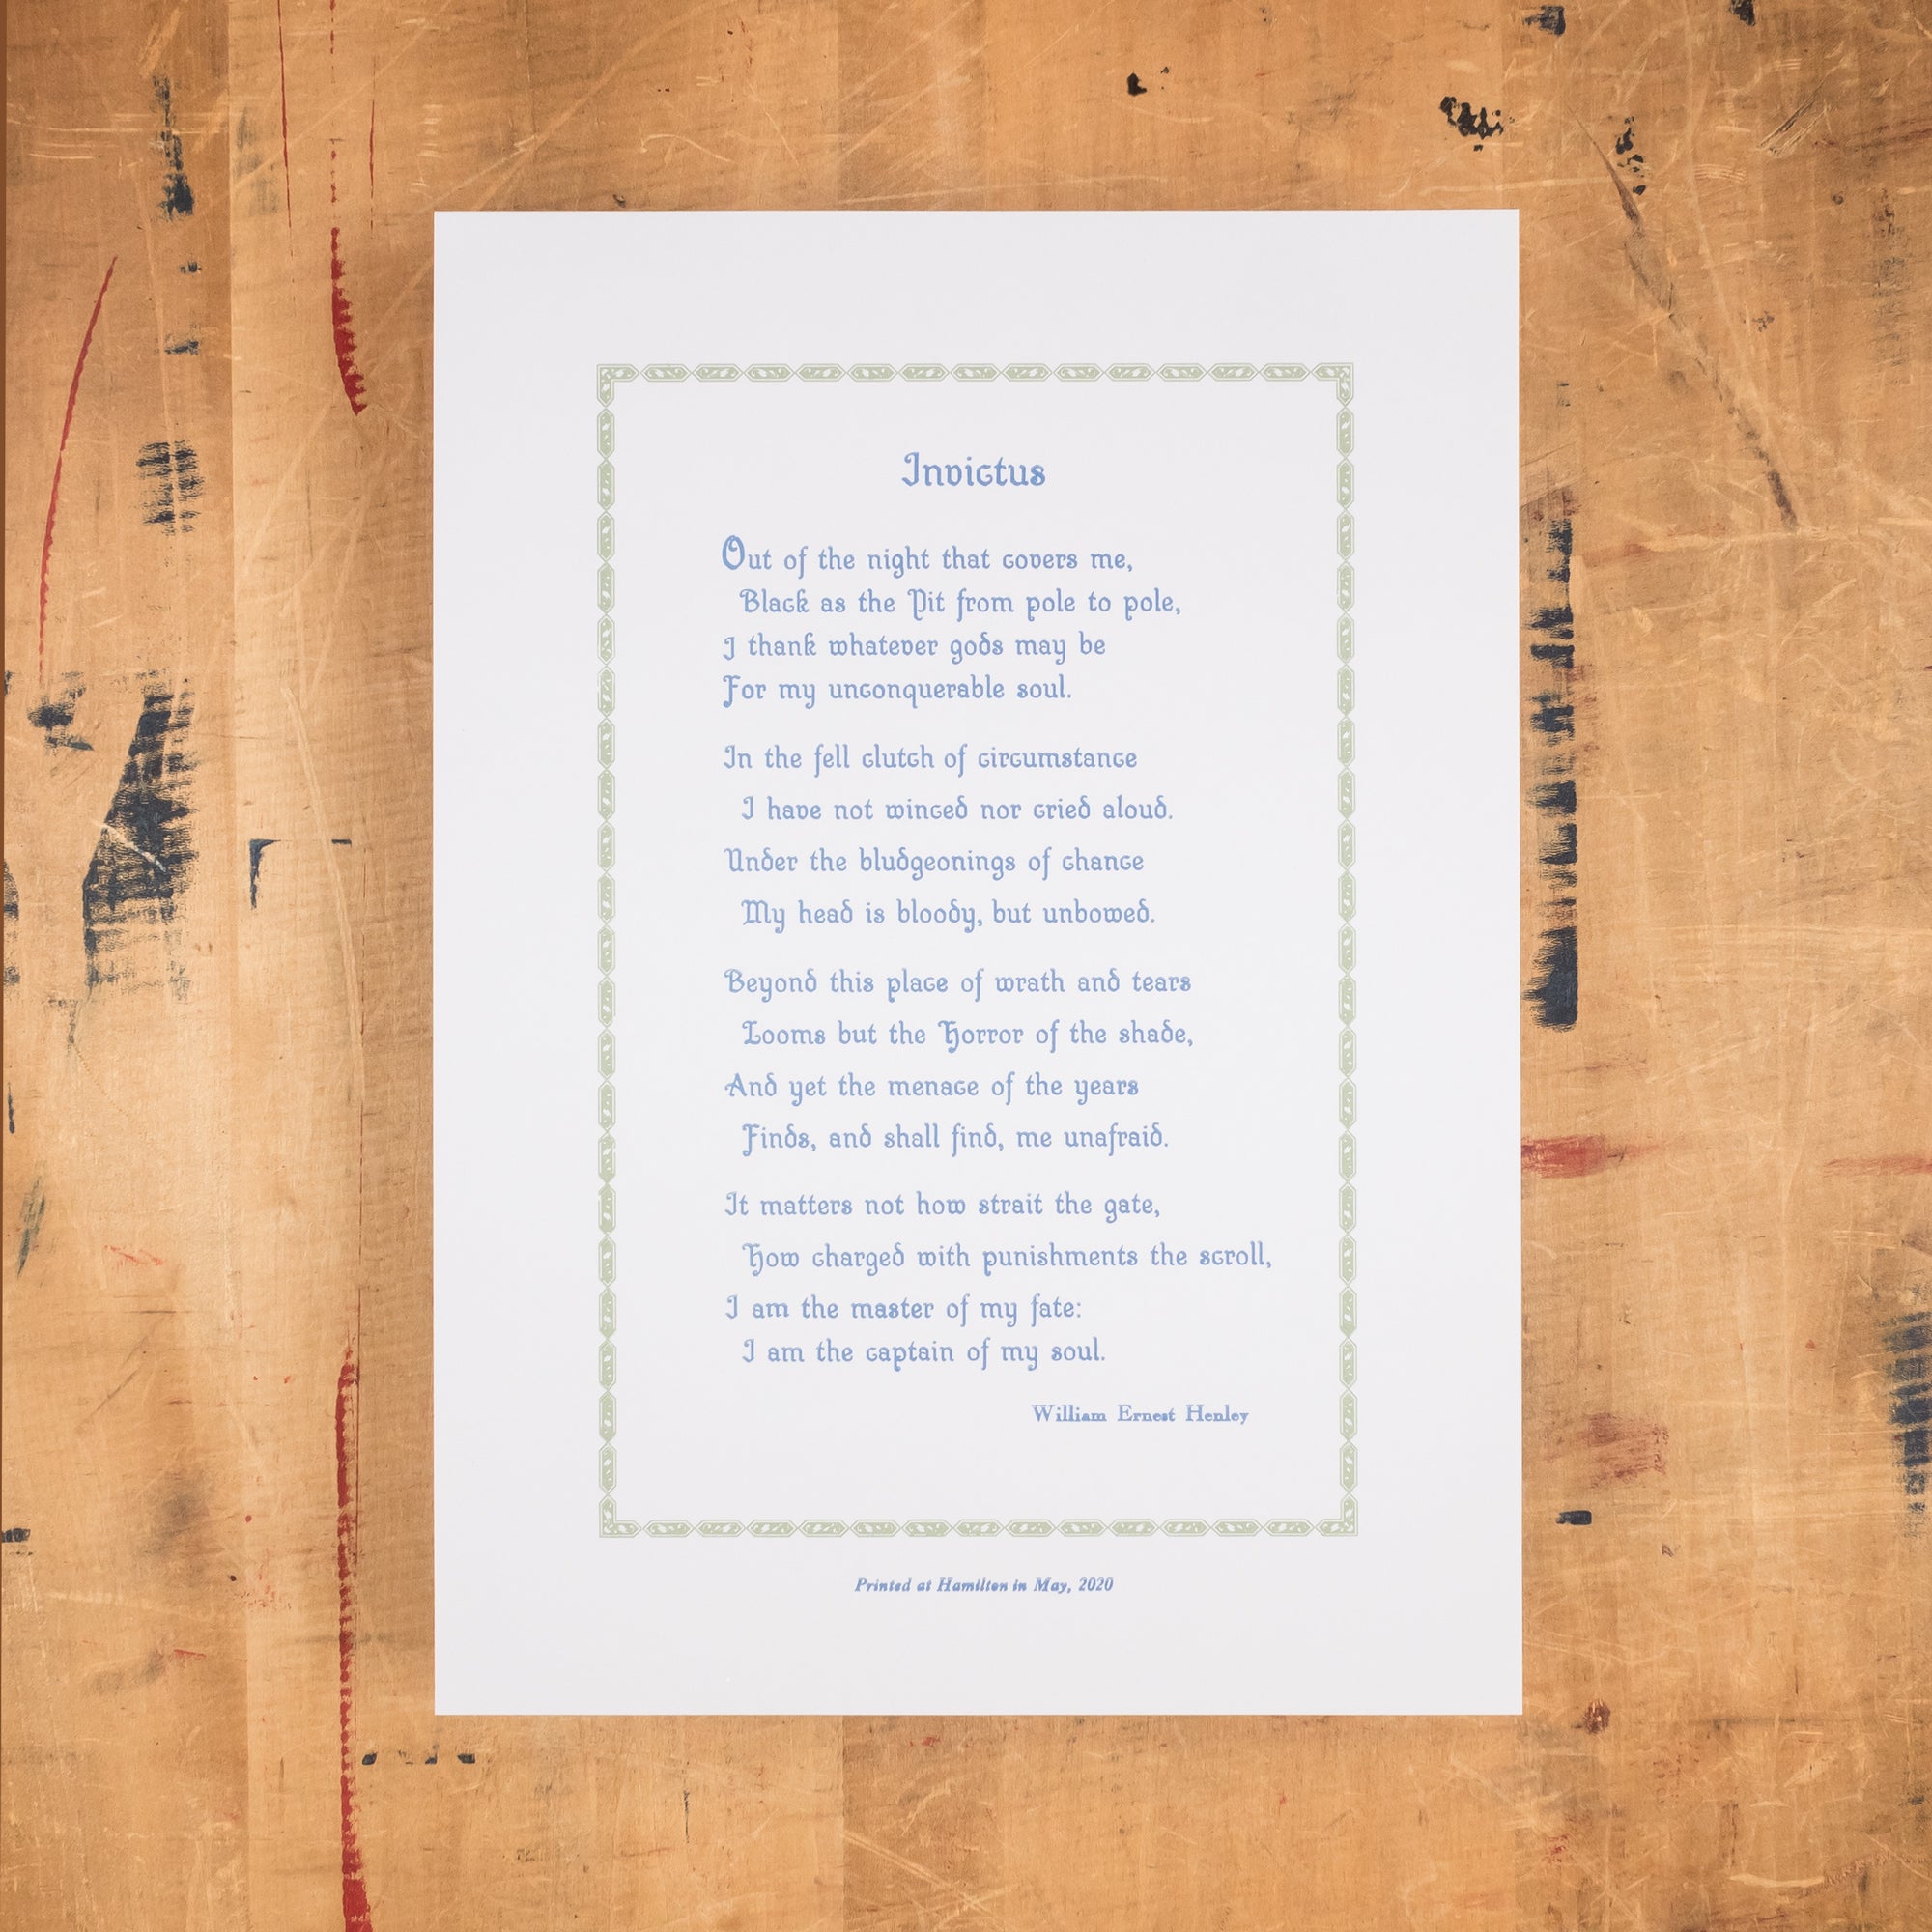 Invictus
Out of the night that covers me,
Black as the Pit from pole to pole,
I thank whatever gods may be
For my unconquerable soul.
In the fell clutch of circumstance
I have not winced nor cried aloud.
Under the bludgeonings of chance
My head is bloody, but unbowed.
Beyond this place of wrath and tears
Looms but the Horror of the shade,
And yet the menace of the years
Finds, and shall find, me unafraid.
It matters not how strait the gate,
How charged with punishments the scroll,
I am the master of my fate:
I am the captain of my soul.
William Ernest Henley
Printed at Hamilton in May, 2020